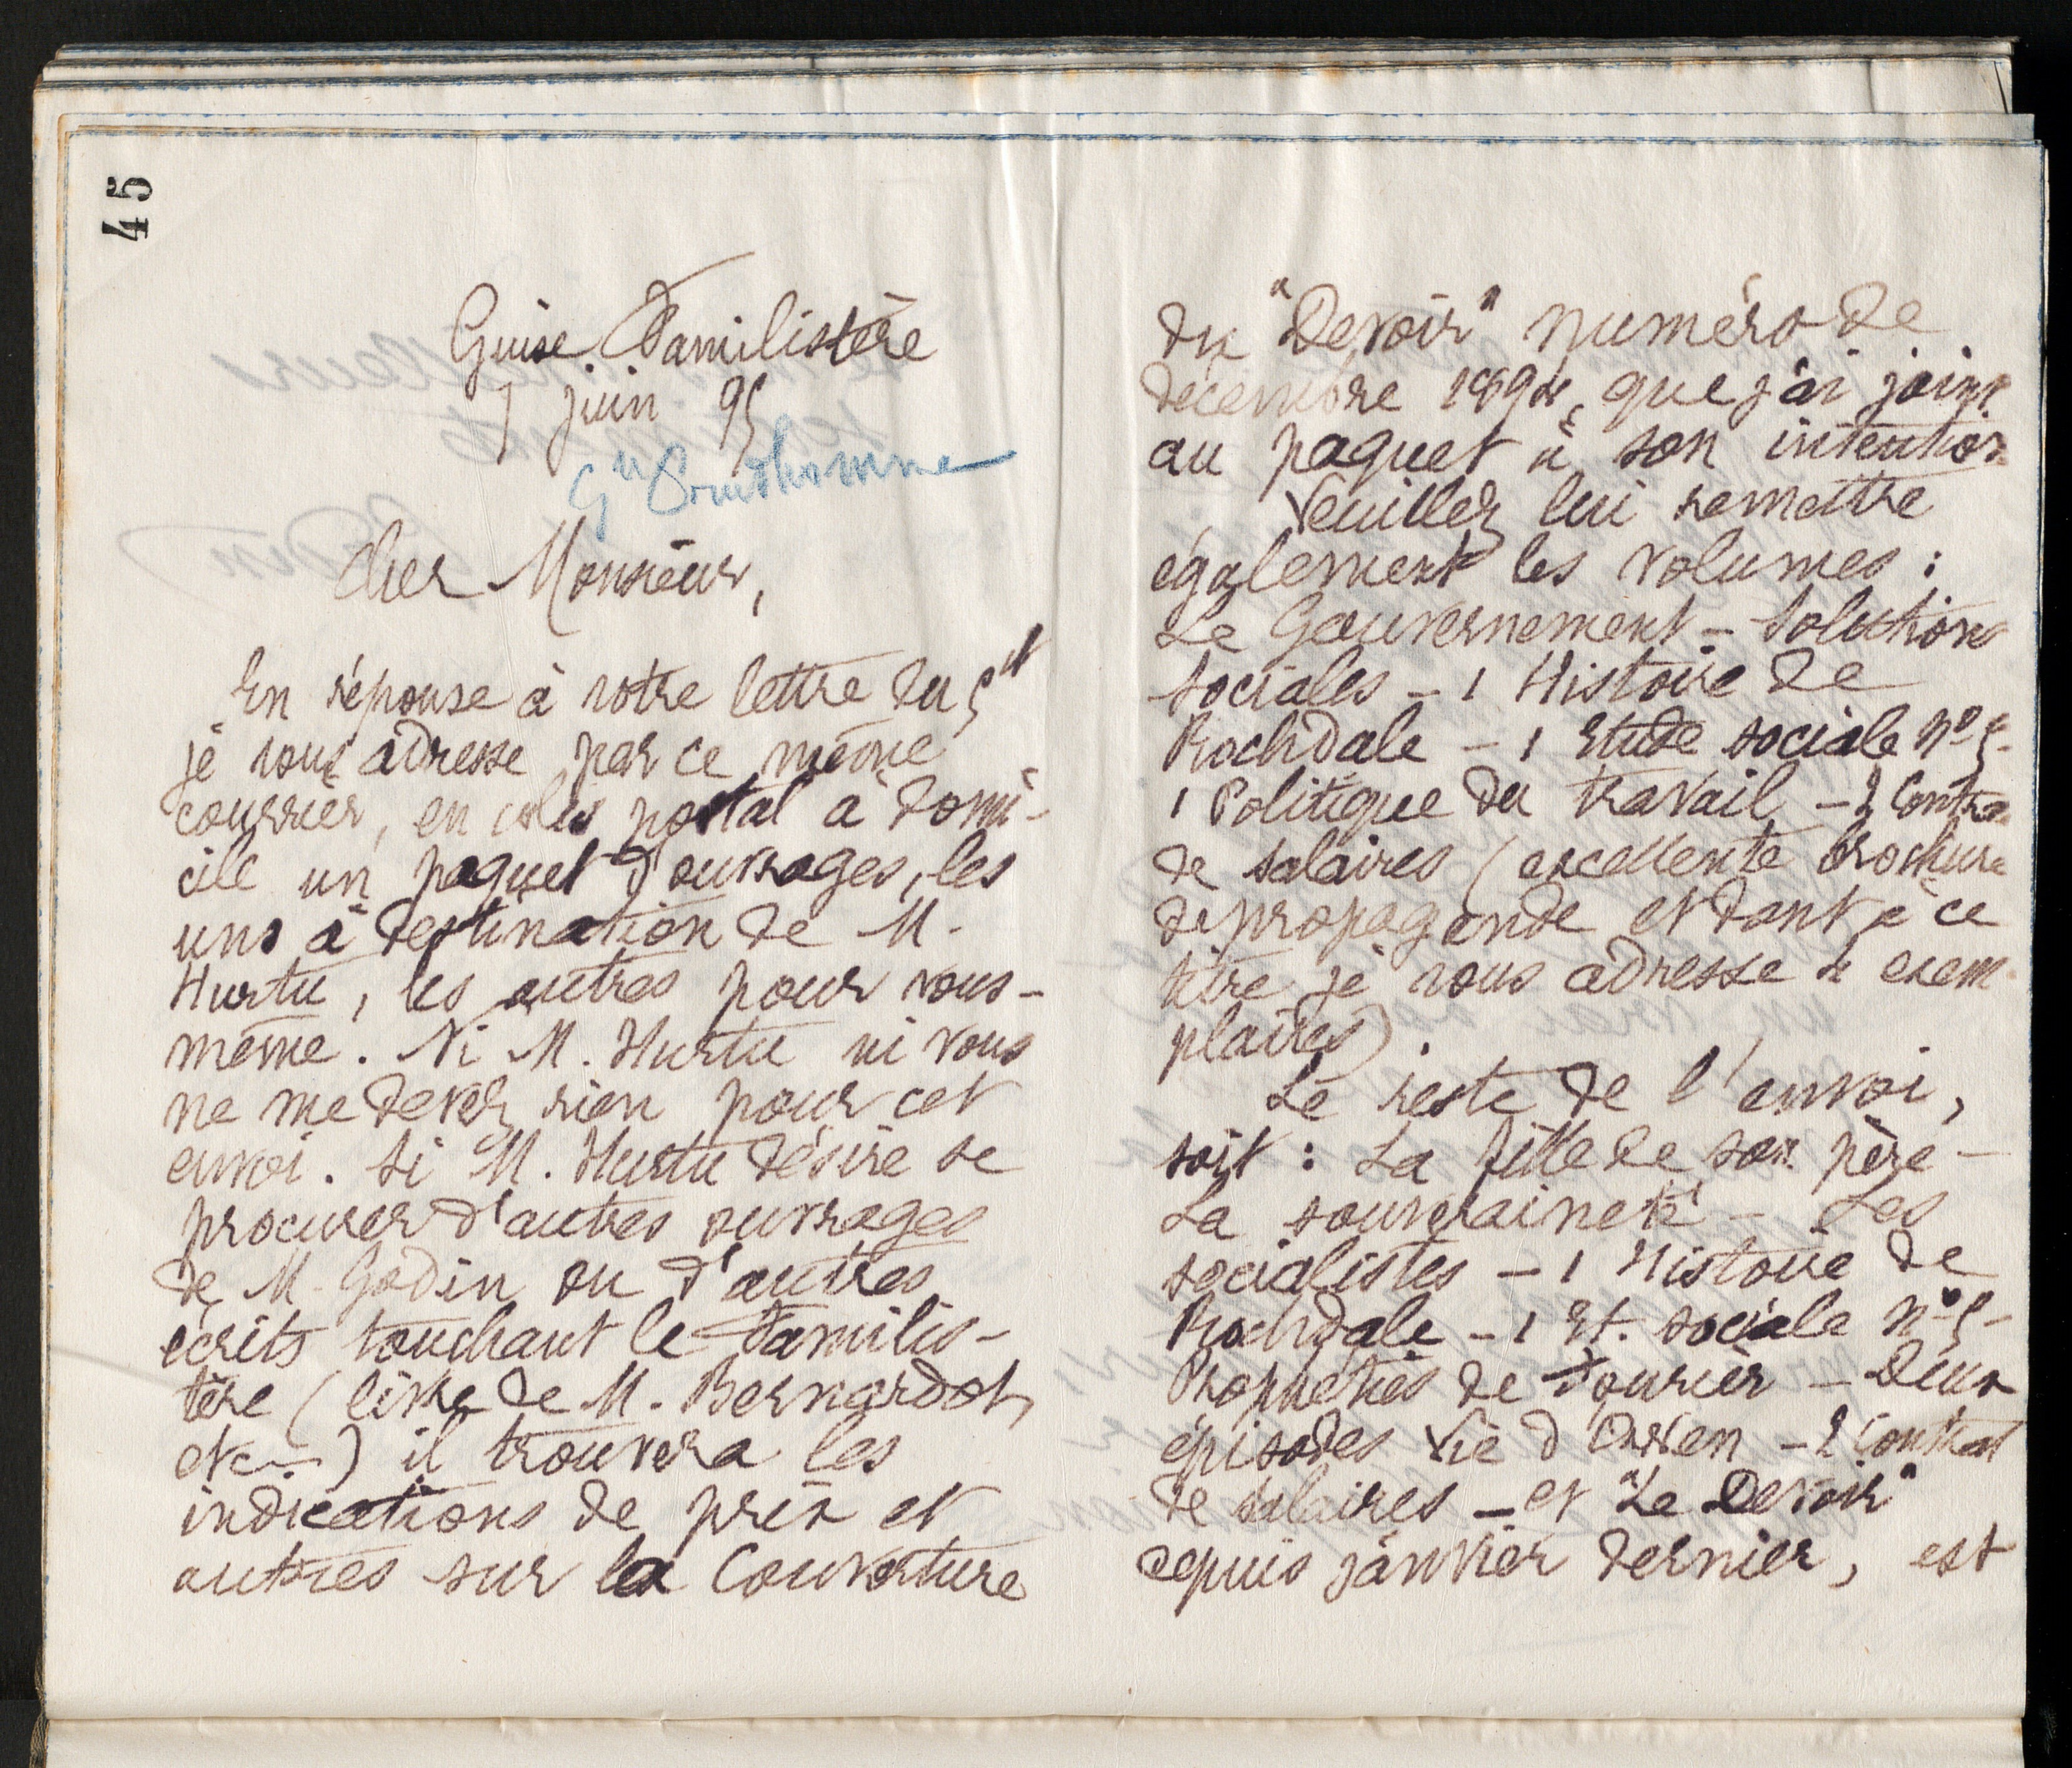 45
Guise Familistère
7 juin 95
Gn Prudhomme
Cher Monsieur,
En réponse à votre lettre du 5 ct
je vous adresse par ce même
courrier, en colis postal à domi-
cile un paquet d'ouvrages, les
uns à destination de M.
Hurtu, les autres pour vous-
même. Ni M. Hurtu ni vous
ne me devez rien pour cet
envoi. Si M. Hurtu désire se
procurer d'autres ouvrages
de M. Godin ou d'autres
écrits touchant le Familis-
tère (livre de M. Bernardot,
etc...) il trouvera les
indications de prix et
autres sur la couverture
du "Devoir" numéro de
décembre 1894, que j'ai joint
au paquet à son intention
Veuillez lui remettre
également les volumes :
Le Gouvernement - Solutions
sociales - 1 Histoire de
Rochdale - 1 Etude sociale n° 5 -
1 Politique du travail - 2 Contrat
de salaires (excellente brochure
de propagande et dont à ce
titre je vous adresse 4 exem
plaires)
Le reste de l'envoi,
soit : La fille de son père -
La souveraineté - Les
socialistes - 1 Histoire de
Rochdale - 1 Et. sociale n° 5 -
Prophéties de Fourier - Deux
épisodes Vie d'Owen - 2 Contrat
de salaires - et "Le Devoir"
depuis janvier dernier, est